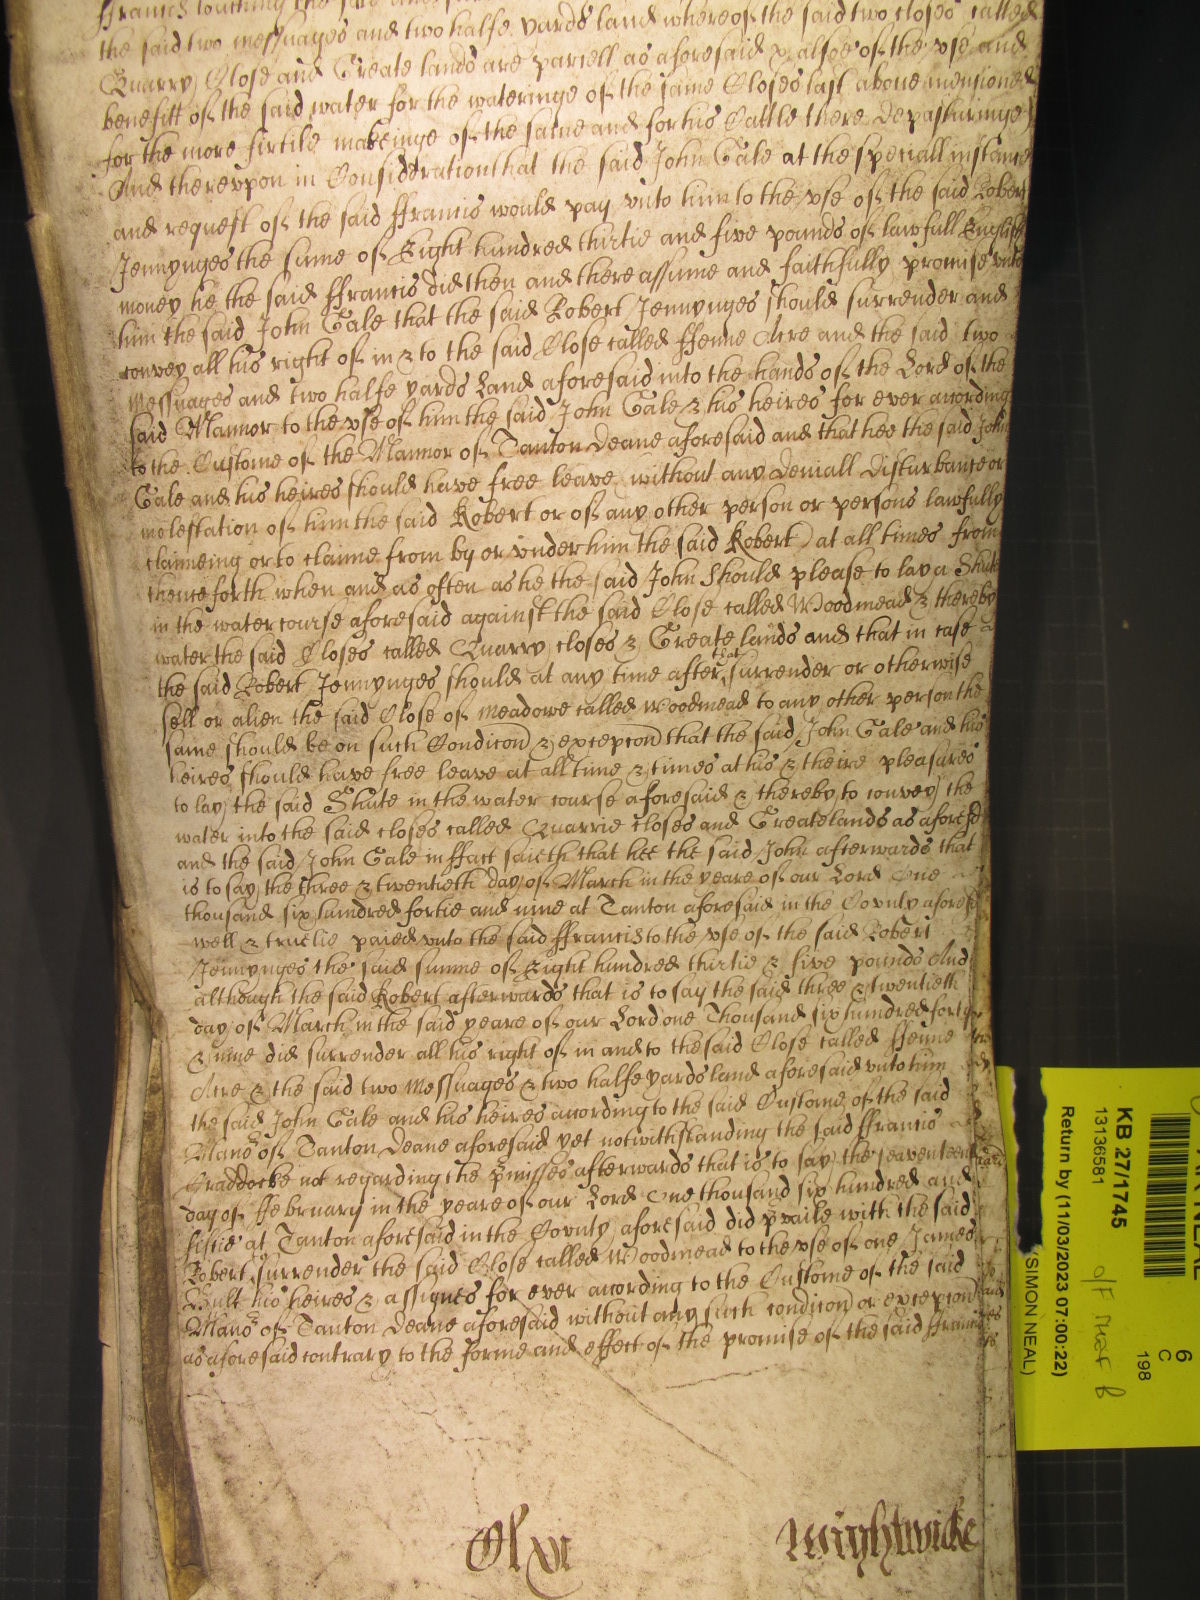 ffrancis touching the
the said two messuages and two halfe yards land whereof the said two closes called
Quarry Close and Create lands are parcell as aforesaid & alsoe of the vse and
benefitt of the said water for the wateringe of the same Closes last above mencioned
for the more firtile makeinge of the same and for his Cattle there depasturinge)
And therevpon in Consideration that the said John Gale at the speciall instance
and request of the said ffrancis would pay vnto him to the vse of the said Robert
Jennynges the sume of Eight hundred thirtie and five pounds of lawfull English
money he the said ffrancis did then and there assume and faithfully promise vnto
him the said John Gale that the said Robert Jennynges should surrender and
convey all his right of in & to the said Close called ffenne Acre and the said two
Messuages and two halfe yards Land aforesaid into the hands of the Lord of the
said Mannor to the vse of him the said John Gale & his heires for ever according
to the Custome of the Mannor of Tanton Deane aforesaid and that hee the said John
Gale and his heires should have free leave without any deniall disturbance or
molestation of him the said Robert or of any other person or persons lawfully
claimeing or to claime from by or vnder him the said Robert) at all times from
thence forth when and as often as he the said John should please to lay a Shute
in the water course aforesaid against the said Close called Woodmead & thereby
water the said Closes called Quarry closes & Greate lands and that in case
the said Robert Jennynges should at any time after that surrender or otherwise
sell or alien the said Close of meadowe called Woodmead to any other person the
same should be on such Condicon & excepcon that the said John Gale and his
heires should have free leave at all time & times at his & theire pleasures
to lay the said Shute in the water course aforesaid & thereby to convey the
water into the said closes called Quarrie closes and Greatelands as aforesd
and the said John Gale in ffact saieth that hee the said John afterwards that
is to say the three & twentieth day of March in the yeare of our Lord One
thousand six hundred fortie and nine at Tanton aforesaid in the County aforesd
well & truelie paied vnto the said ffrancis to the vse of the said Robert
Jennynges the said summe of Eight hundred thirtie & five pounds And
although the said Robert afterwards that is to say the said three & twentieth
day of March in the said yeare of our Lord one Thousand six hundred fortye
& nine did surrender all his right of in and to the said Close called ffenne
Acre & the said two messuages & two halfe yards land aforesaid vnto him
the said John Gale and his heires according to the said Custome of the said
Manor of Tanton Deane aforesaid yet notwithstanding the said ffrancis
Craddocke not regarding the pmisses afterwards that is to say the seaventeenth
day of ffebruary in the yeare of our Lord One thousand six hundred and
fiftie at Tanton aforesaid in the County aforesaid did pvaile with the said
Robert surrender the said Close called Woodmead to the vse of one James
Bult his heires & assignes for ever according to the Custome of the said
Manor of Tanton Deane aforesaid without any such condicon or excepcon
as aforesaid contrary to the forme and effect of the promise of the said ffrancis
Ol xvi Wightwicke
KB 27/1745
13136581
Return by (11/03/2023 07:00:22)
(SIMON NEAL)
6
C
198